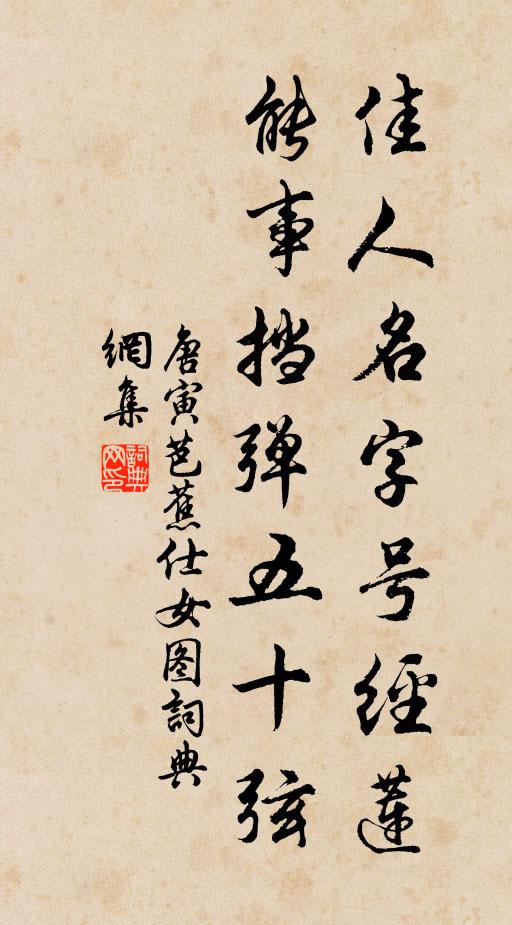 佳人名字号經蓮
能事挡弹五十弦
唐寅芭蕉仕女图詞典
網集
詞典网印